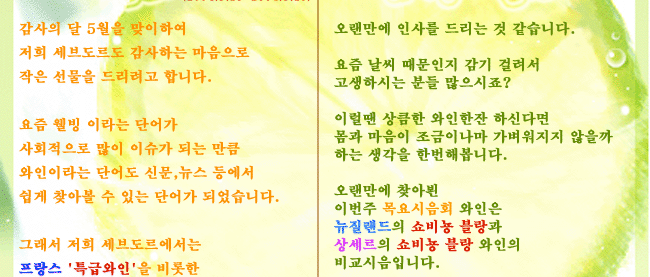 감사의 달 5월을 맞이하여
저희 세브도르도 감사하는 마음으로
작은 선물을 드리려고 합니다.
요즘 웰빙 이라는 단어가
사회적으로 많이 이슈가 되는 만큼
와인이라는 단어도 신문,뉴스 등에서
쉽게 찾아볼 수 있는 단어가 되었습니다.
그래서 저희 세브도르에서는
프랑스 '특급와인'을 비롯한
오랜만에 인사를 드리는 것 같습니다.
요즘 날씨 때문인지 감기 걸려서
고생하시는 분들 많으시죠?
이럴땐 상큼한 와인한잔 하신다면
몸과 마음이 조금이나마 가벼워지지 않을까
하는 생각을 한번해봅니다.
오랜만에 찾아뵌
이번주 목요시음회 와인은
뉴질랜드의 쇼비뇽 블랑과
상세르의 쇼비뇽 블랑 와인의
비교시음입니다.